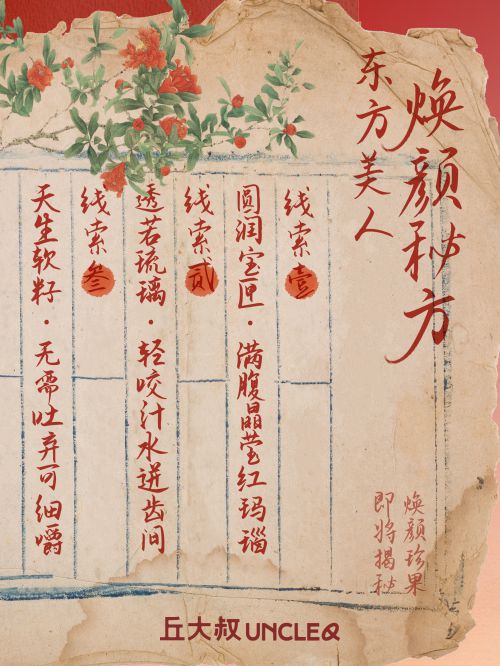 焕颜秘方
东方美人
线索壹
圆润宝匣·满腹晶莹红玛瑙
线索贰
透若琉璃·轻咬汁水迸齿间
线索叁
天生软籽·无需吐弃可细嚼
焕颜珍果
即将揭秘
丘大叔 UNCLEQ